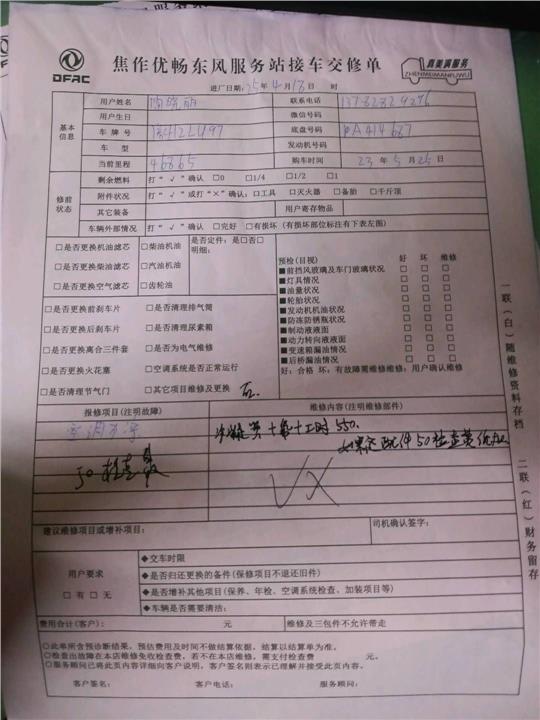 DFAC
焦作优畅东风服务站接车交修单
真美满服务
ZHENMEIMANFUWU
进厂日期: 25年4月18日 时
基本信息
用户姓名 联系电话
用户生日 微信号码
车牌号 底盘号码
车型 发动机号码
当前里程 46865 购车时间 23年5月25日
修前状态
剩余燃料 打“√”确认 □0 □1/4 □1/2 □1
附件状况 打“√”或打“×”确认: □工具 □灭火器 □备胎 □千斤顶
其它装备 用户寄存物品
车辆外部情况 打“√”确认 □完好 □有损坏 (有损坏部位标注有下表左图)
□是否更换机油滤芯 □柴油机油 是否定件: 是□否□
明细:
□是否更换柴油滤芯 □汽油机油
□是否更换空气滤芯 □齿轮油
□是否更换前刹车片 □是否清理排气筒
□是否更换后刹车片 □是否清理尿素箱
□是否更换离合三件套 □是否为电气维修
□是否更换火花塞 □空调系统是否正常运行
□是否清理节气门 □其它项目维修及更换 否.
预检(目视) 好 坏 维修
■前挡风玻璃及车门玻璃状况 □ □ □
■灯具情况 □ □ □
■油量状况 □ □ □
■轮胎状况 □ □ □
■发动机机油状况 □ □ □
■防冻防锈瓶状况 □ □ □
■制动液液面 □ □ □
■动力转向液液面 □ □ □
■变速箱漏油情况 □ □ □
■后桥漏油情况 □ □ □
好: 合格 坏: 有故障需维修维修: 用户确认维修
报修项目(注明故障) 维修内容(注明维修部件)
空调不
工时550.
配件50检查费
建议维修项目或增补项目: 司机确认签字:
用户要求
□有 □无
◆交车时限
◆是否归还更换的备件(保修项目不退还旧件)
◆是否增补其他项目(保养、年检、空调系统检查、加装项目等)
◆车辆是否需要清洁:
费用合计(客户): 元 维修及三包件不允许带走
○此单所含预诊断结果, 预估费用及时间不做结算依据, 结算以结算单为准。
○检查出故障在本店维修免收检查费, 若不在本店维修, 需支付检查费 元。
○服务顾问已将此页内容详细向客户说明, 客户签名则表示已理解并接受此页内容。
客户签名: 客户电话: 服务顾问:
一联(白)随维修资料存档
二联(红)财务留存